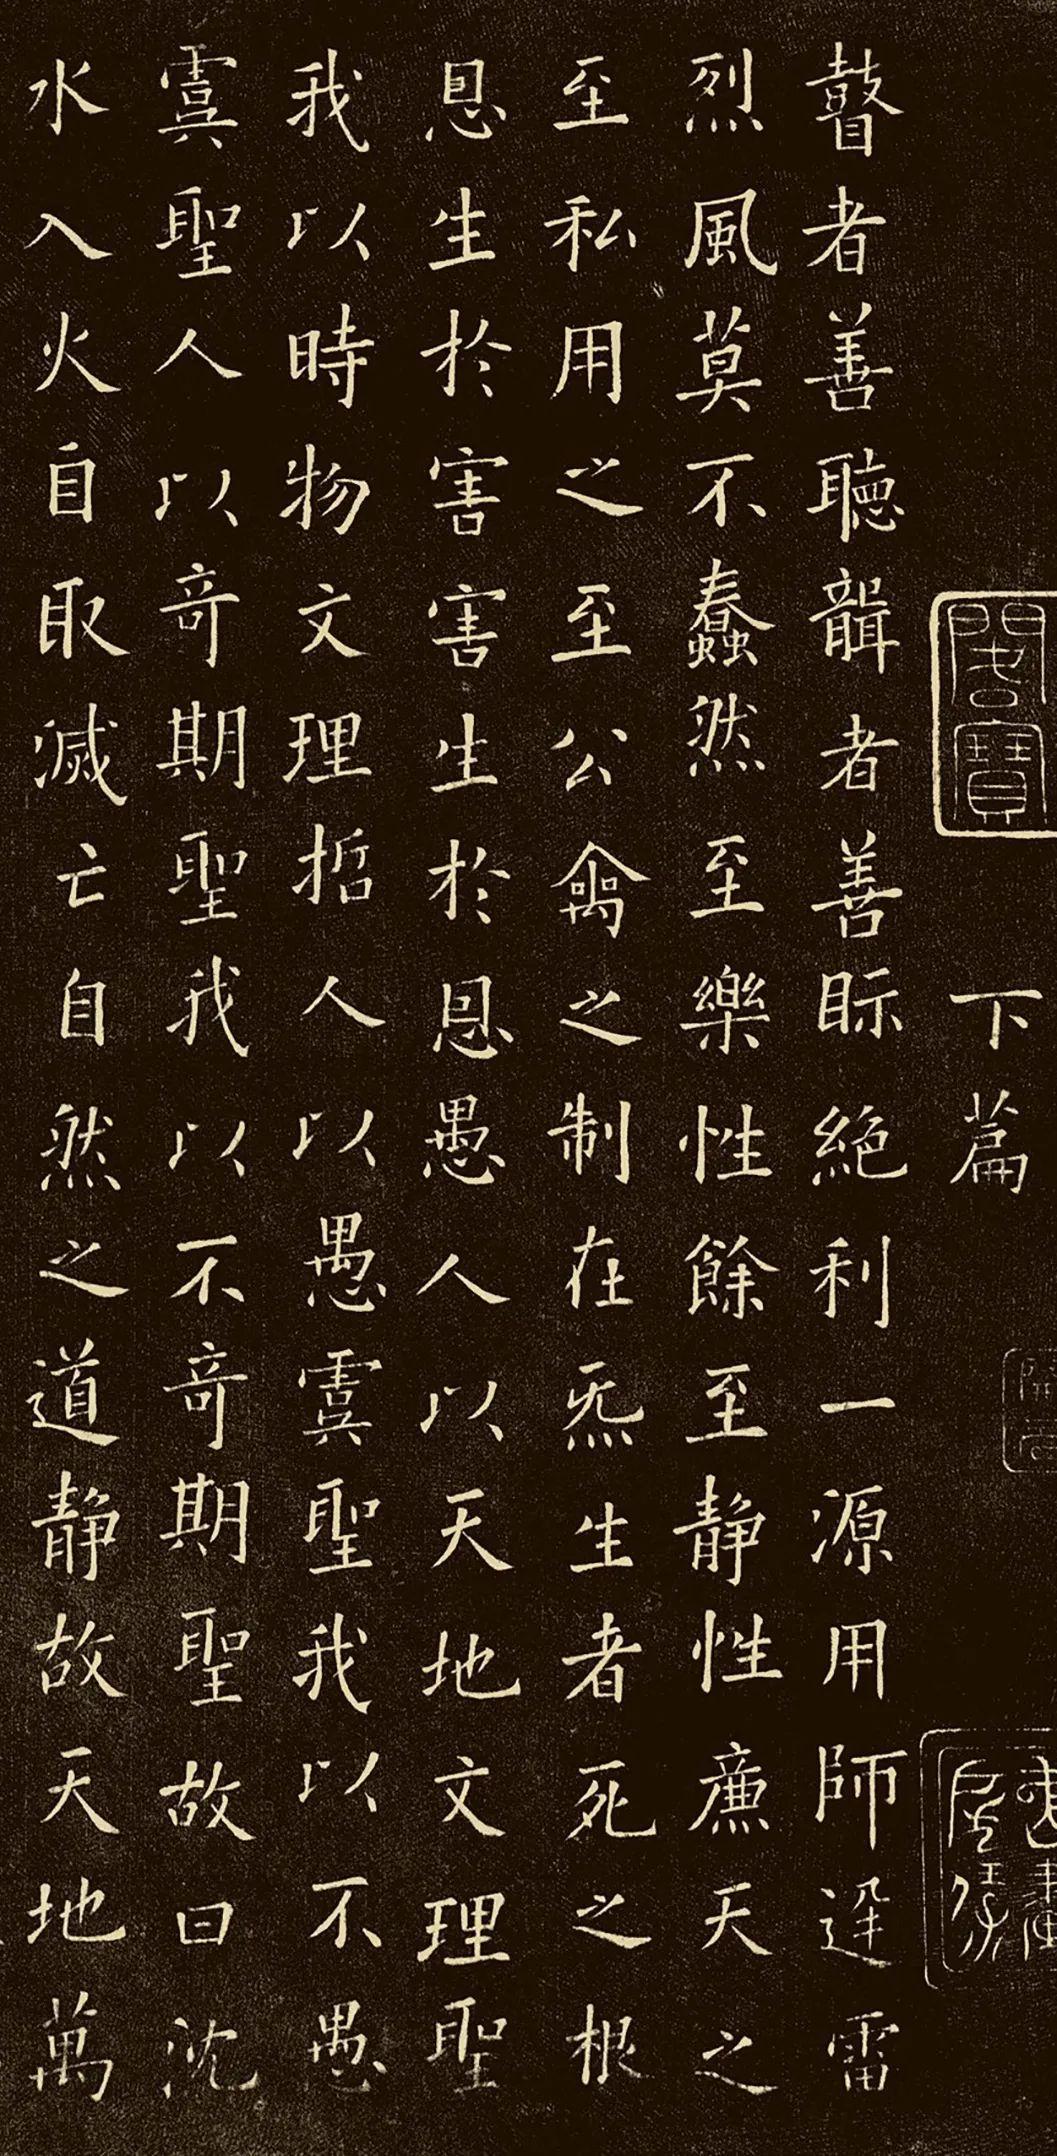 下篇
瞽者善聽聾者善眎絕利一源用師迅雷
烈風莫不蠢然至樂性餘至靜性廉天之
至私用之至公禽之制在炁生者死之根
恩生於害害生於恩愚人以天地文理聖
我以時物文理哲人以愚虞聖我以不愚
虞聖人以奇期聖我以不奇期聖故曰沈
水入火自取滅亡自然之道靜故天地萬